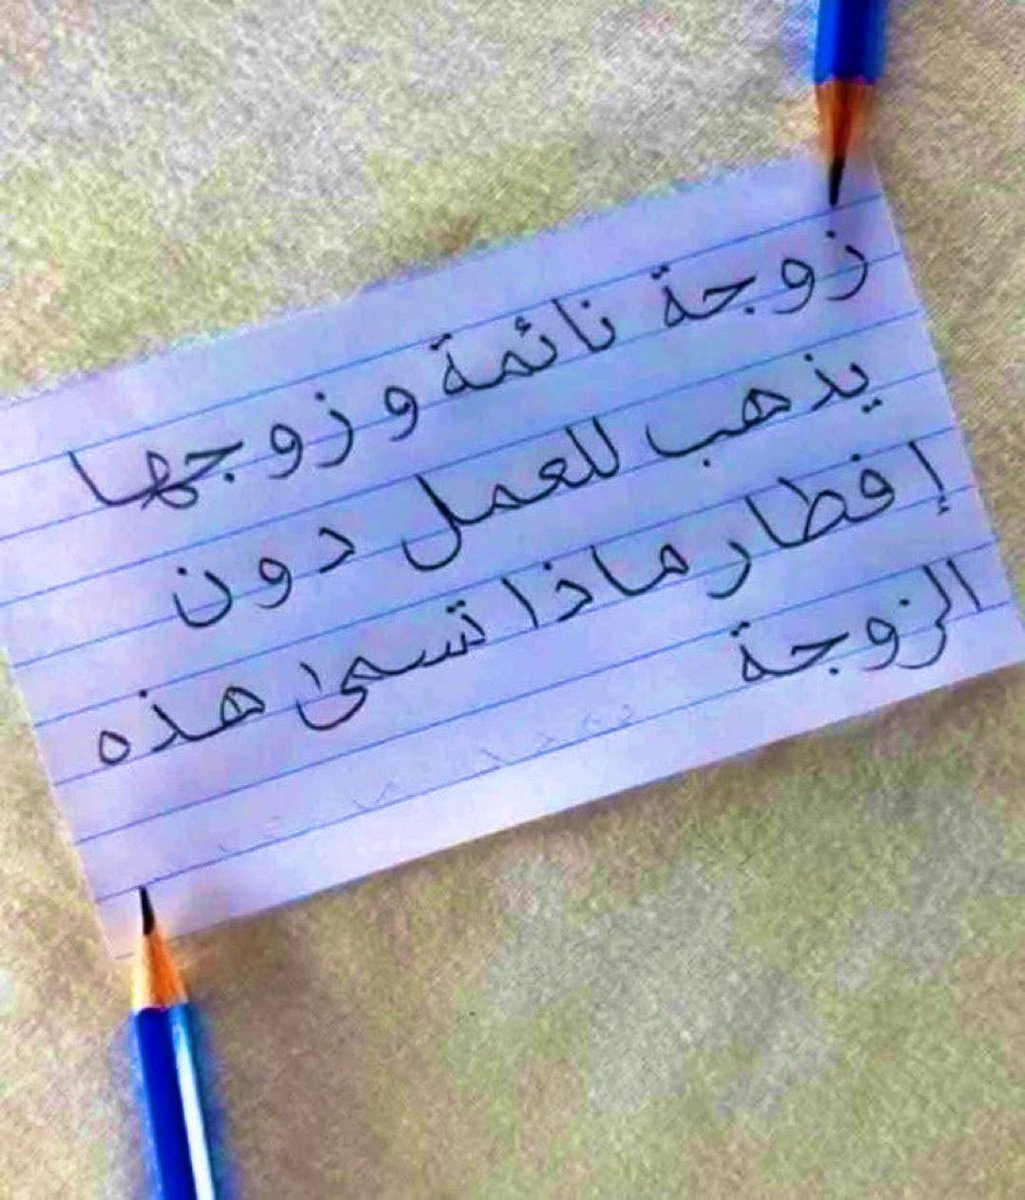 زوجة نائمة و زوجها
يذهب للعمل دون
إفطار ماذا تسمى هذه
الزوجة